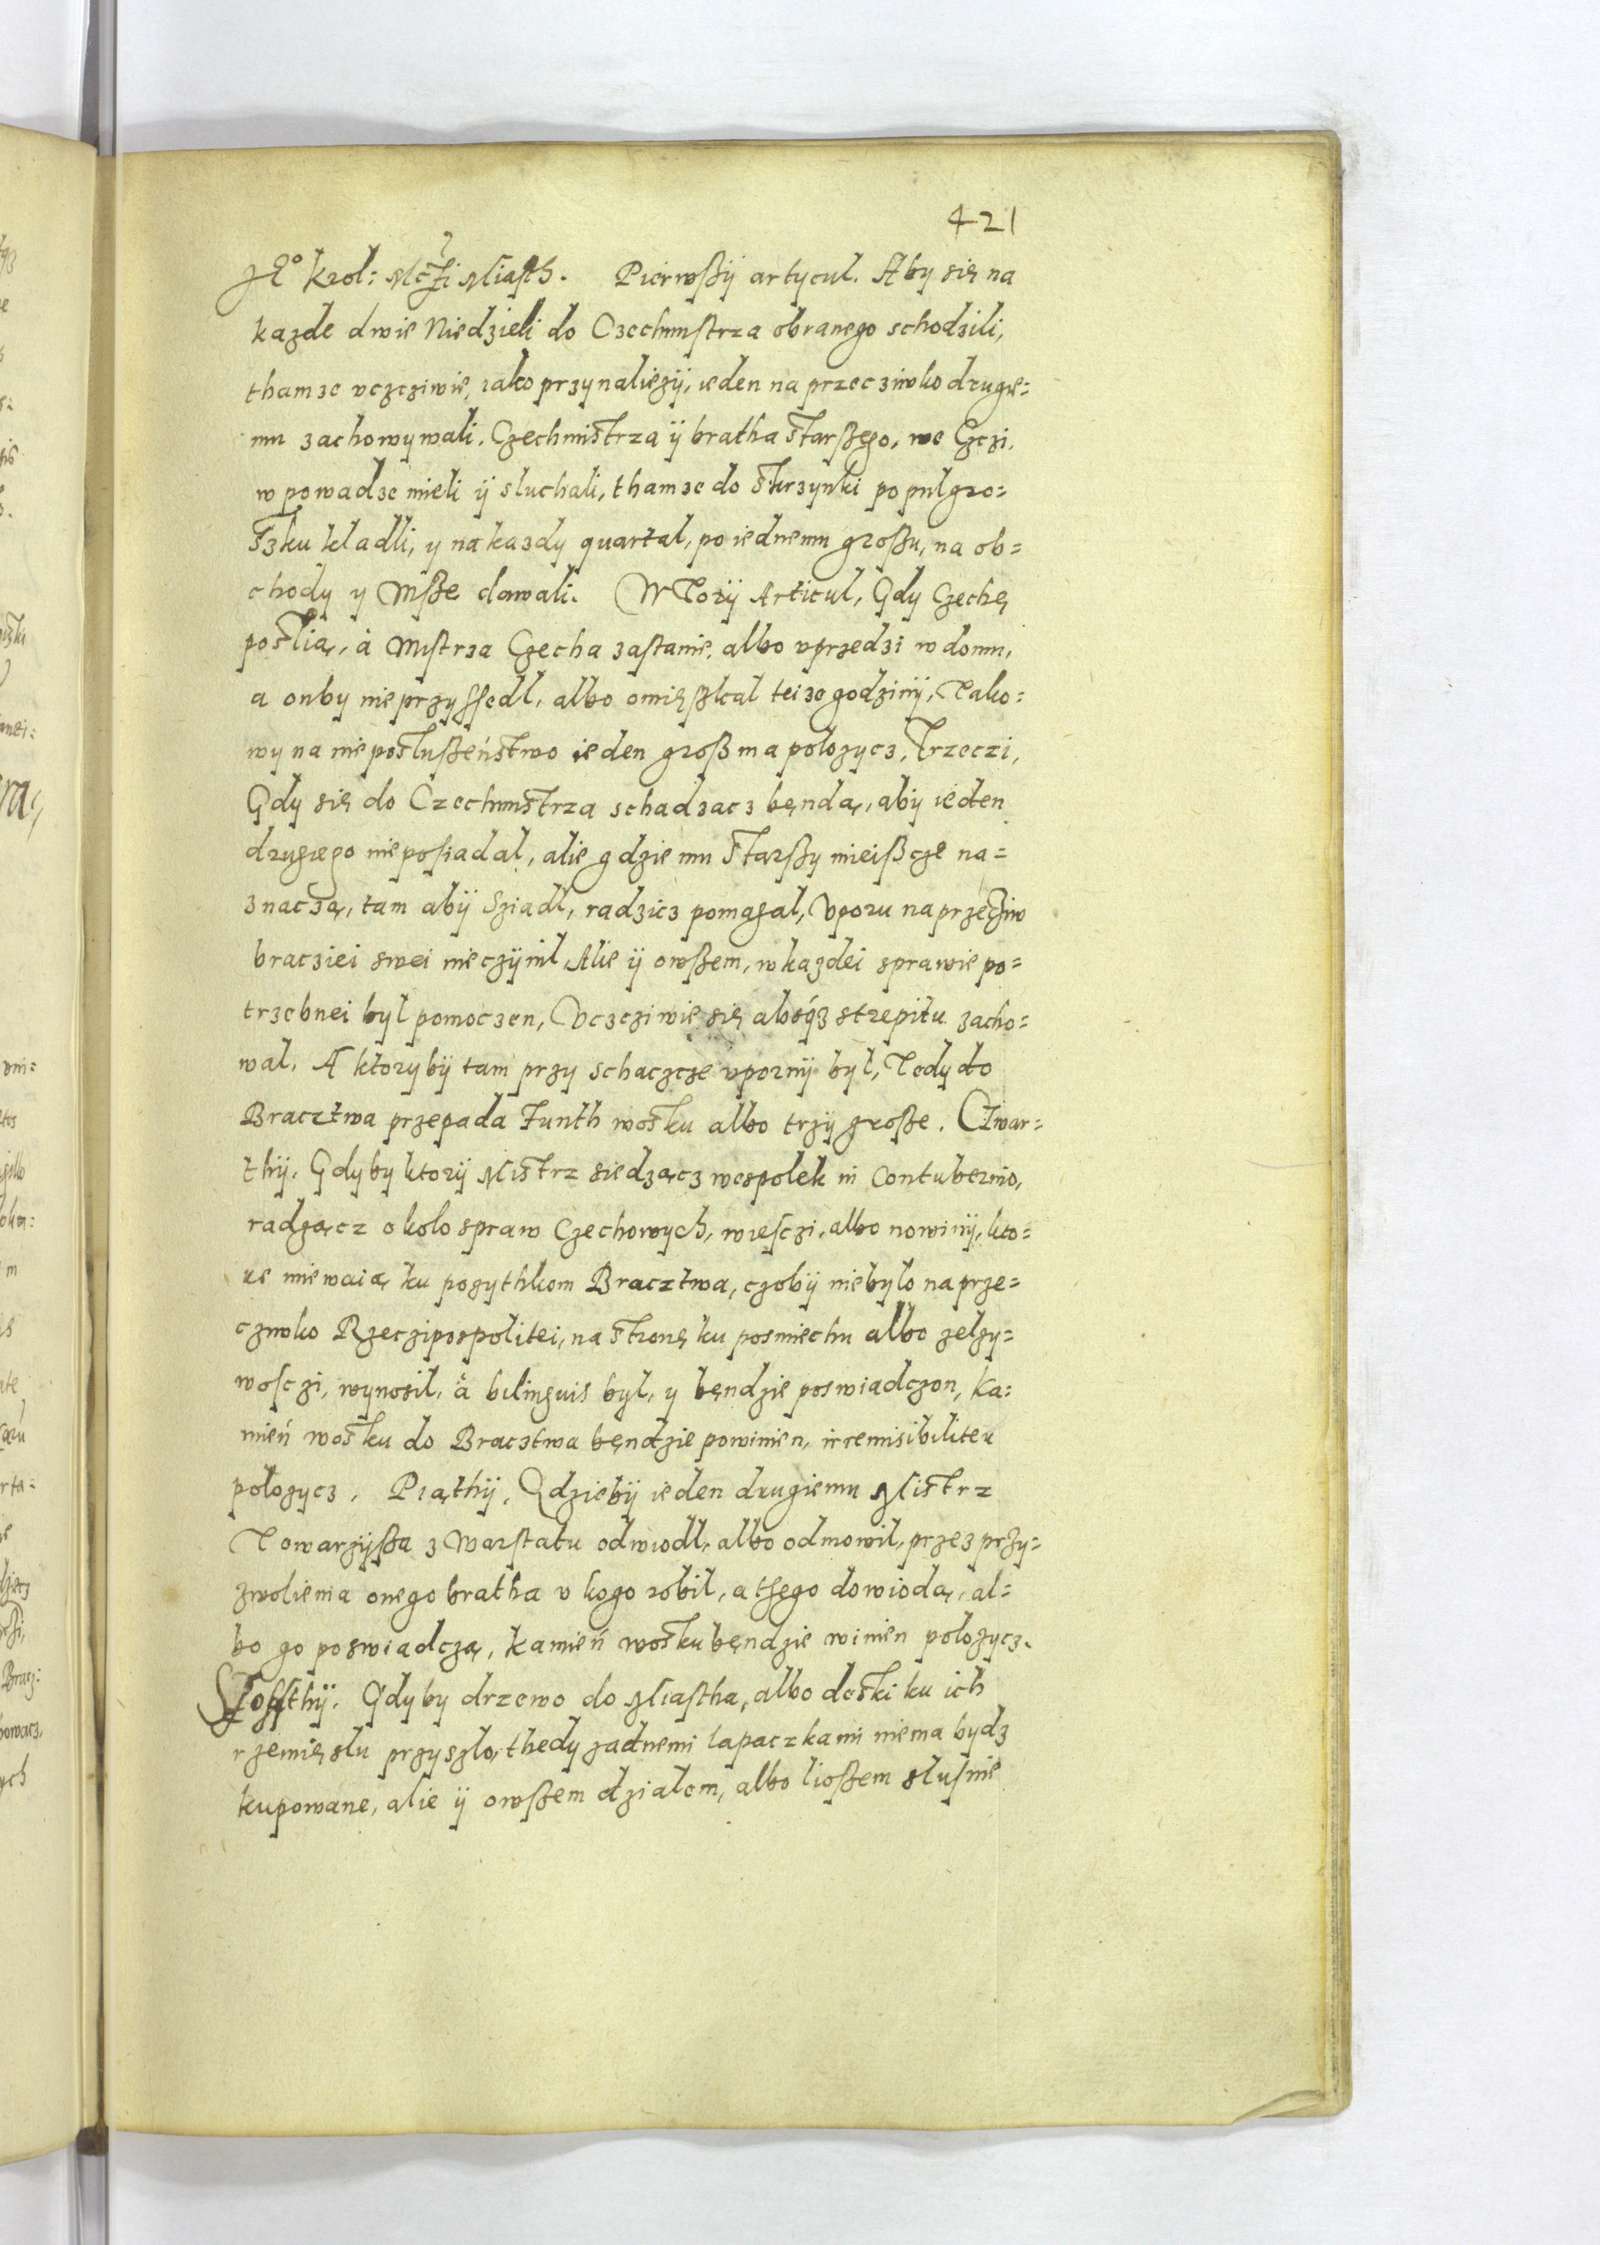 421
JEº Krol: Mczi Miasth. Pierwßÿ artycul. Aby się na
kazde dwie Niedzieli do Czechmistrza obranego schodzili,
thamze vczcziwie, iako przynaliezÿ, ieden na przecziwko drugie=
mu zachowywali. Czechmistrza ÿ bratha starßego, we Czczi,
w powadze mieli ÿ sluchali, thamze do skrzynki po pulgro=
szku kladli, y na kazdy quartal, po iednemu großu, na ob=
chody y Mße dawali. Wtorÿ Articul, Gdy Czechę
poslią, à Mistrza Czecha zastanie, albo vprzedzi w domu,
a onby nie przyssedl, albo omięszkal teize godzinÿ, Tako=
wy na nieposlußeństwo ieden groß ma polozycz, Trzeczi,
Gdy się do Czechmistrza schadzacz bęndą, abÿ ieden
drugiego nie posiadal, alie gdzie mu starßy mieißcze na=
znaczą, tam abÿ Sziadl, radzicz pomagal, Vporu naprzecziw
bracziei swei nie czÿnil, Alie ÿ owßem, w kazdei sprawie po=
trzebnei byl pomoczen, Vczcziwie się absqz strepitu zacho=
wal. A ktorybÿ tam przy schaczcze vpornÿ byl, Tedy do
Bracztwa przepada Funth wosku albo trzÿ große. Czwar=
thÿ. Gdyby ktorÿ Mistrz siedzącz wespolek in Contubernio,
radząc z okolo spraw Czechowych, wiesczi, albo nowinÿ, kto=
re miewaią ku pozythkom Bracztwa, czobÿ niebylo na prze=
czwko Rzeczipospolitei, na stronę ku posmiechu albo zelzy=
wosczi, wynosil, à bilinguis byl, y bęndzie poswiadczon, Ka=
mień wosku do Bracztwa bęndzie powinien, irremisibiliter
polozycz. Piąthÿ. Gdziebÿ ieden drugiemu Mistrz
Towarzÿßa z Warstatu odwiodl, albo odmowil, przez przy=
zwolienia onego bratha v kogo robil, a thego dowiodą, al=
bo go poswiadczą, kamień wosku bęndzie winien polozycz.
Szossthÿ. Gdyby drzewo do Miastha, albo deski ku ich
rzemięslu przyszlo, thedy zadnemi lapaczkami niema bydz
kupowane, alie ÿ owßem dzialem, albo lioßem slusnie